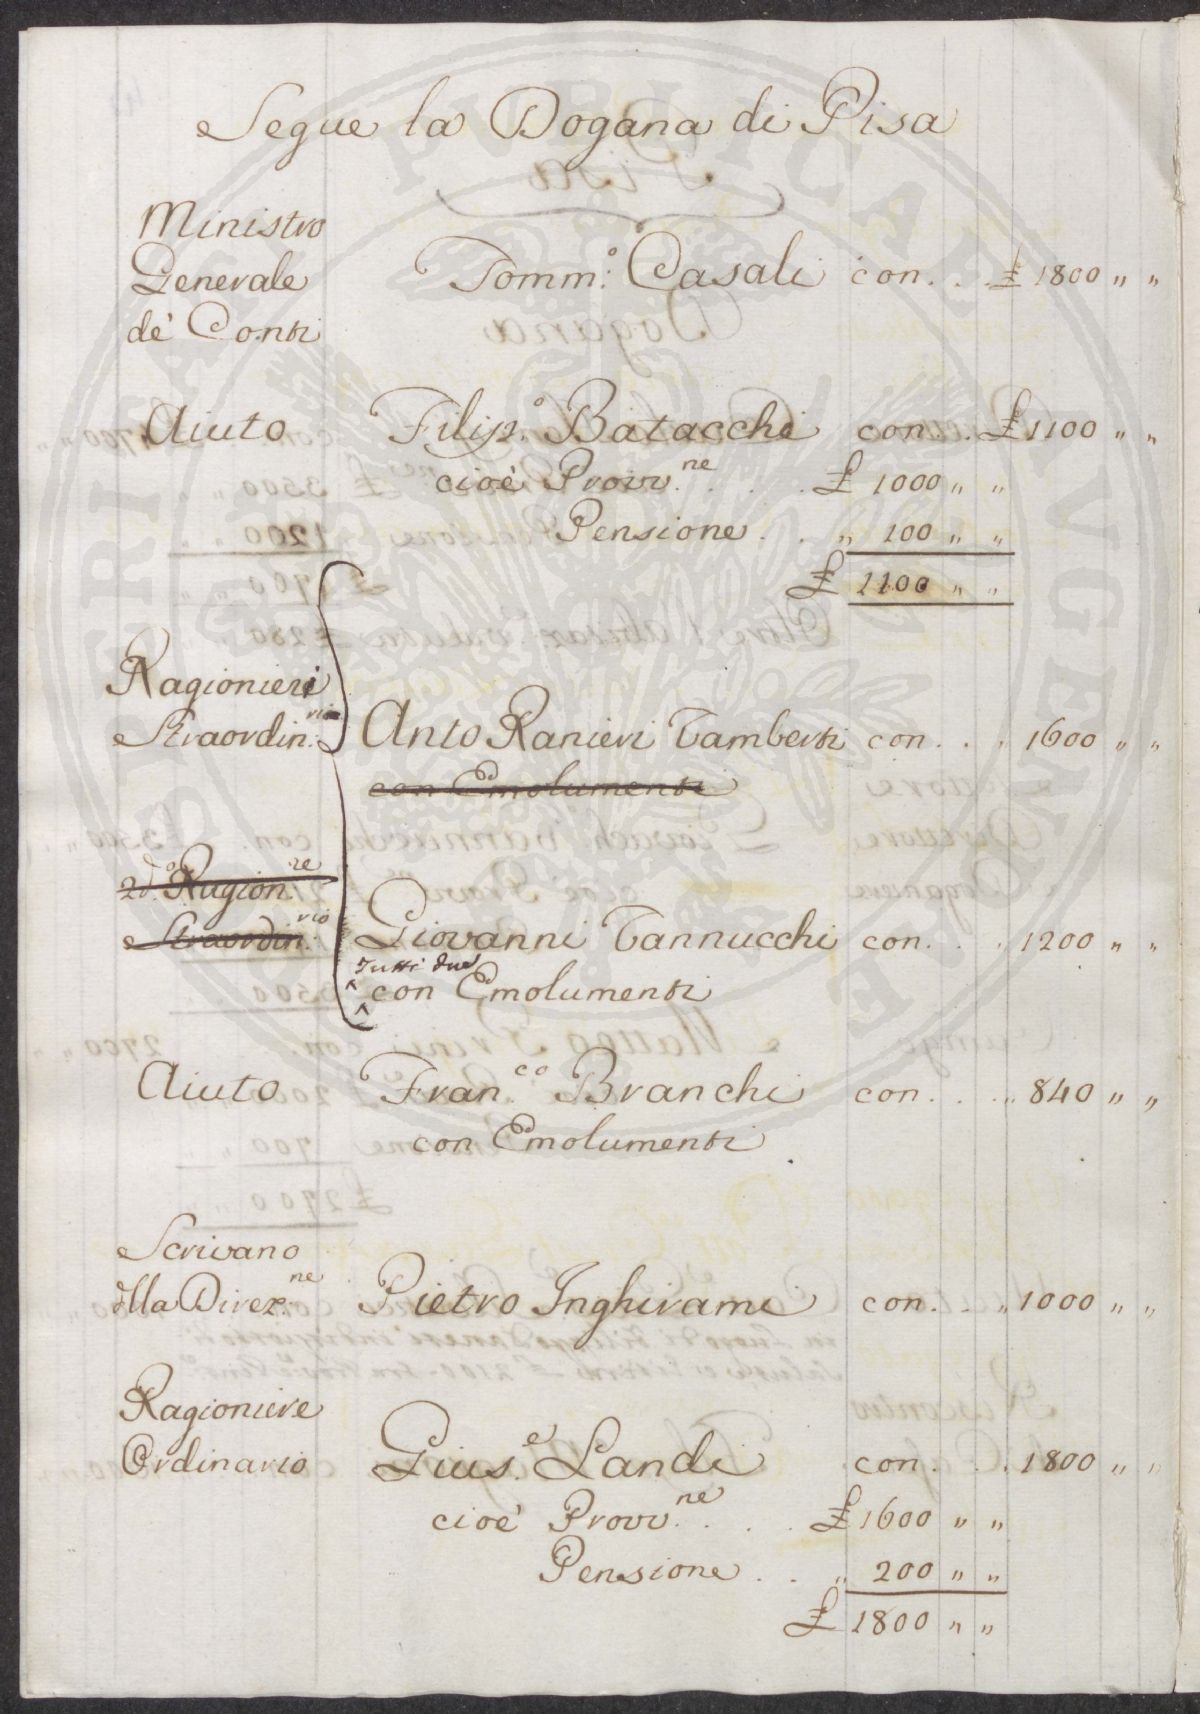 Segue la Dogana di Pisa
Ministro
Generale
de' Conti
Tomm:o Casali con . . . £ 1800 " "
Aiuto Filip.o Batacchi con . . . £ 1100 " "
cioè Provv.ne . . . . £ 1000 " "
Pensione . . " 100 " "
£ 1100 " "
Ragionieri
Straordin:rii Anto Ranieri Tamberti con . . . 1600 " "
con Emolumenti
2d.o Ragion.re
Straordin:rio Giovanni Tannucchi con . . . 1200 " "
Tutti due
con Emolumenti
Aiuto Fran.co Branchi con . . . " 840 " "
con Emolumenti
Scrivano
dlla Direz:ne Pietro Inghirami con . . " 1000 " "
Ragioniere
Ordinario Gius.e Landi con . . . 1800 " "
cioè Provv.ne . . . . £ 1600 " "
Pensione . . " 200 " "
£ 1800 " "